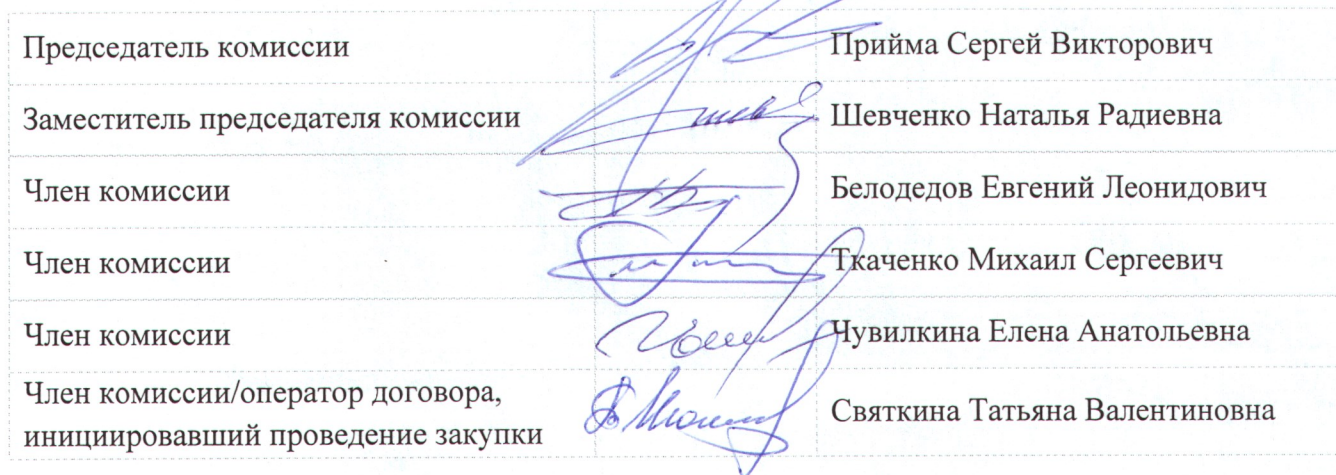 Председатель комиссии Прийма Сергей Викторович
Заместитель председателя комиссии Шевченко Наталья Радиевна
Член комиссии Белодедов Евгений Леонидович
Член комиссии Ткаченко Михаил Сергеевич
Член комиссии Чувилкина Елена Анатольевна
Член комиссии/оператор договора,
инициировавший проведение закупки Святкина Татьяна Валентиновна